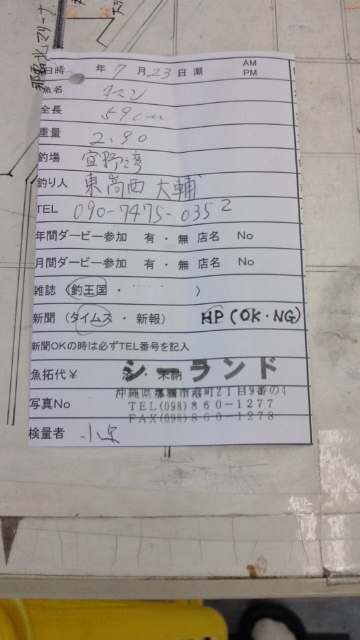 日時 年 7 月 23 日 潮 AM PM
魚名 タマン
全長 59cm
重量 2.90
釣場 宜野湾
釣り人 東高西 大輔
TEL 090-7475-0352
年間ダービー参加 有・無 店名 No
月間ダービー参加 有・無 店名 No
雑誌（釣王国・ ）
新聞（タイムス・新報） HP（OK・NG）
新聞OKの時は必ずTEL番号を記入
魚拓代￥ 済 未納
シーランド
沖縄県那覇市港町2丁目9番の4
写真No
TEL(098)860-1277
FAX(098)860-1278
検量者